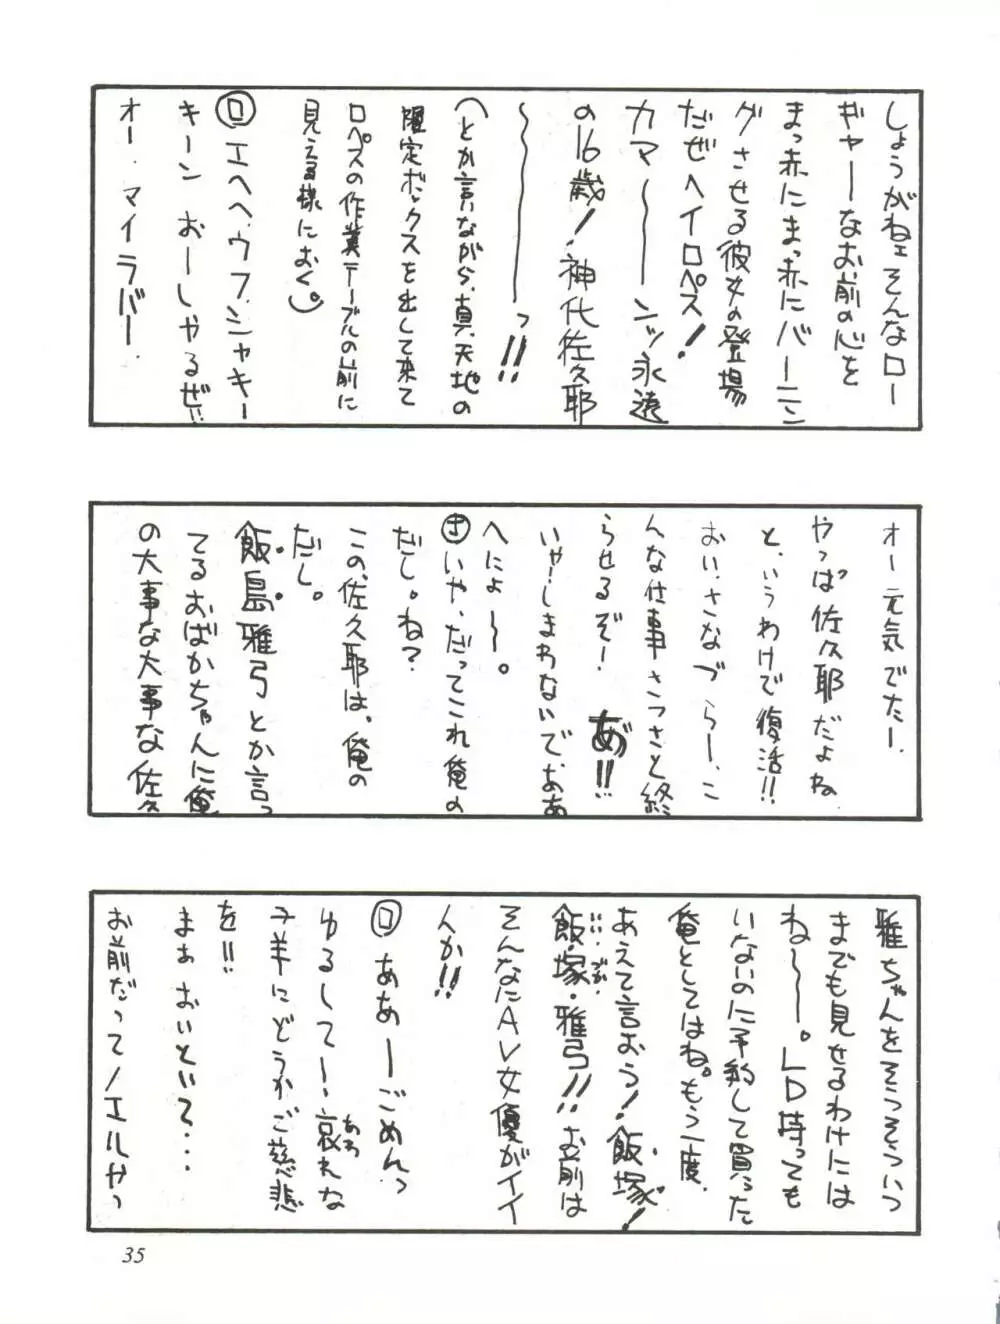 しょうがねェそんなロー
ギャーなお前の心を
まっ赤にまっ赤にバーニン
グさせる彼女の登場
だぜヘイロペス!
カマ〜〜ンッ永遠
の16歳!神代佐久耶
〜〜〜〜っ!!
(とか言いながら、真・天地の
限定ボックスを出して来て
ロペスの作業テーブルの前に
見える様におく)。
ロ エヘヘ、ウフ、シャキー
キーン おーしやるぜ!!
オー、マイラバー、
オー元気でたー、
やっぱ佐久耶だよね、
と、いうわけで復活!!
おい、さなづらー、こ
んな仕事さっさと終
らせるぞー!あ゛!!
いやーしまわないでおああ
へによ〜。
さ いや、だってこれ俺の
だし。ね?
この、佐久耶は、俺の
だし。
飯島雅弓とか言っ
てるおばかちゃんに俺
の大事な大事な佐久
雅ちゃんをそうそういつ
までも見せるわけには
ね〜〜。LD持っても
いないのに予約して買った
俺としてはね。もう一度、
あえて言おう!飯塚!
飯・塚・雅弓!!お前は
そんなにAV女優がイイ
んか!!
ロ ああーごめんっ
ゆるしてー、哀れな
あわ
子羊にどうかご慈悲
を!!
まぁ おいといて・・・
お前だってノエルやっ
35